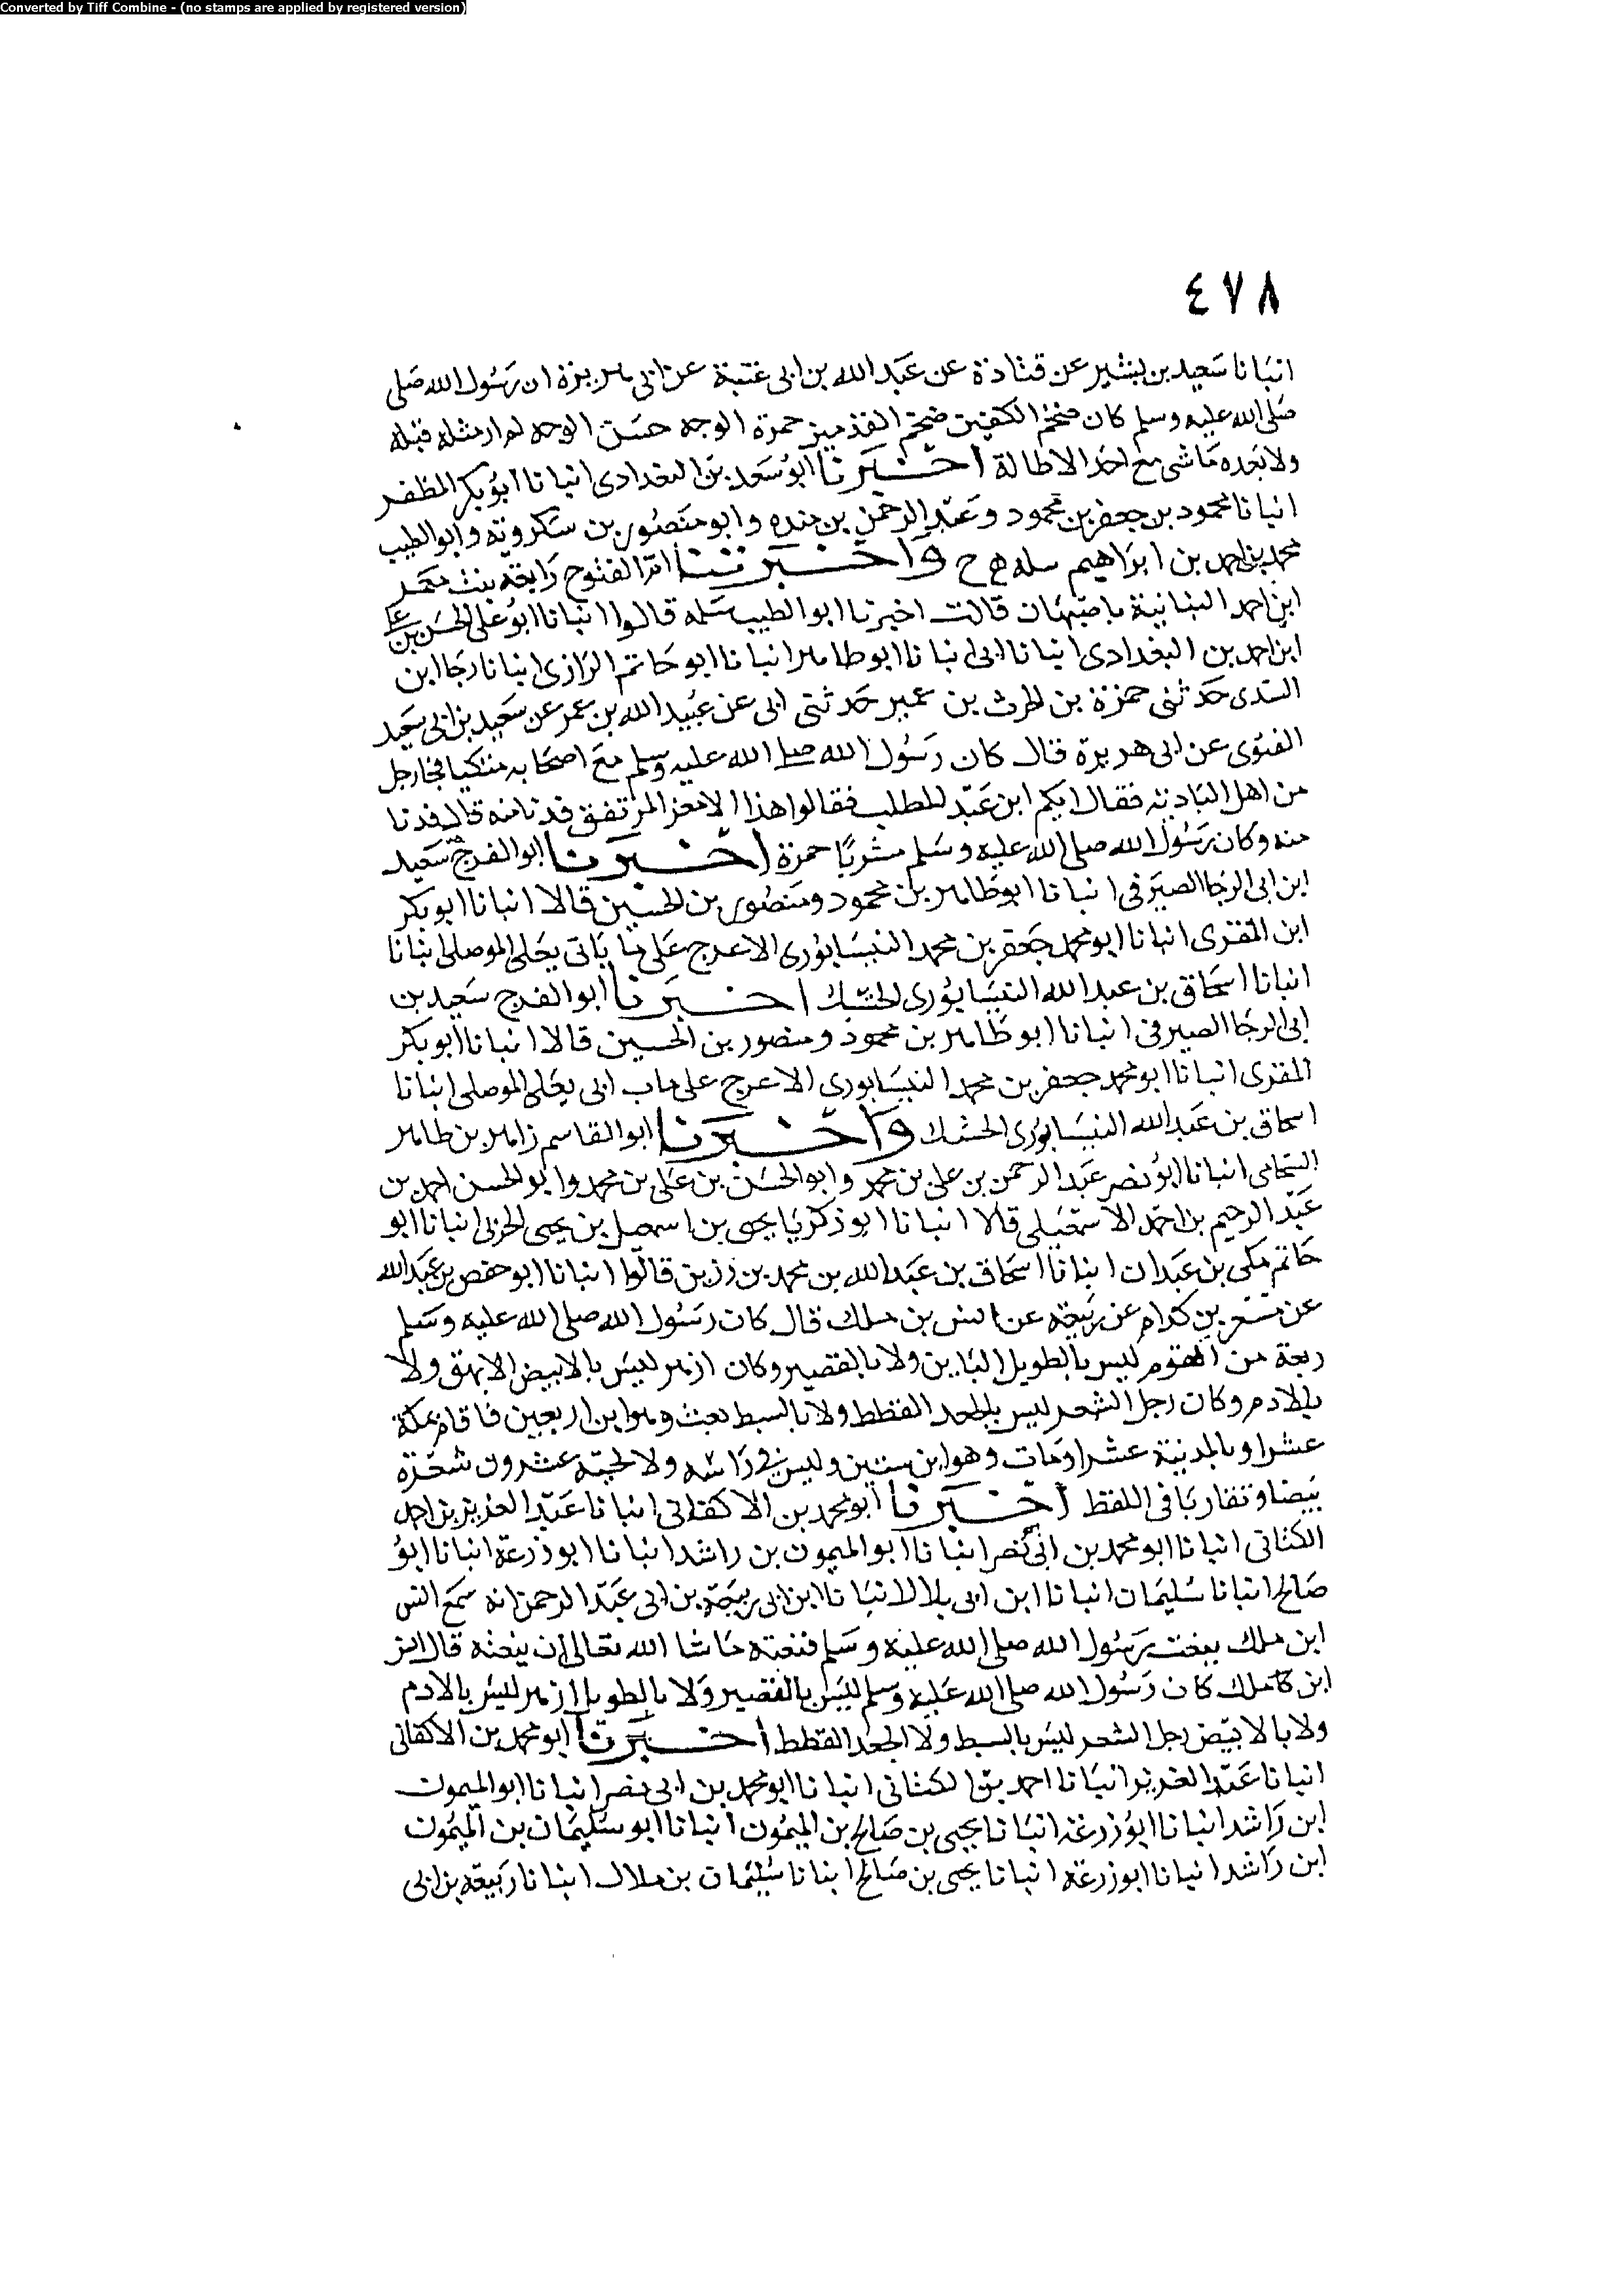 Converted by Tiff Combine - (no stamps are applied by registered version)
٤٧٨
انبانا سعيد بن بشير عن قتادة عن عبد الله بن ابي عتبة عن ابي هريرة ان رسول الله صلى
صلى الله عليه وسلم كان ضخم الكفين ضخم القدمين حمرة الوجه حسن الوجه لم ار مثله قبله
ولا بعده ماشى مع احد الا طاله اخبرنا ابو سعد بن البغدادى انبانا ابو بكر المظفر
انبانا محمود بن جعفر بن محمود وعبد الرحمن بن منده وابو منصور بن شكرويه وابو الطيب
محمد بن احمد بن ابراهيم سله ح واخبرتنا ام الفتوح رابعه بنت معمر
ابن احمد اللبنانية باصبهان قالت اخبرنا ابو الطيب سله قالوا انبانا ابو على الحسن بن على
ابن احمد بن البغدادى انبانا ابى انبانا ابو طاهر انبانا ابو حاتم الرازى انبانا رجا ابن
السندى حدثنى حمزة بن الحرث بن عمير حدثنى ابى عن عبيد الله بن عمر عن سعيد بن ابى سعيد
عن ابى هريرة قال كان رسول الله صلى الله عليه وسلم مع اصحابه متكيا فجا رجل
من اهل البادية فقال ايكم ابن عبد المطلب فقالوا هذا الامغر المرتفق فدنا منه قال فدنا
منه وكان رسول الله صلى الله عليه وسلم مشربا حمرة اخبرنا ابو الفرج سعيد
ابن ابى الرجا الصيرفى انبانا ابو طاهر بن محمود ومنصور بن الحسين قالا انبانا ابو بكر
ابن المقرى انبانا ابو محمد جعفر بن محمد النيسابورى الاعرج على يعلى الموصلى انبانا
انبانا اسحاق بن عبد الله النيسابورى الخشك اخبرنا ابو الفرج سعيد بن
ابى الرجا الصيرفى انبانا ابو طاهر بن محمود ومنصور بن الحسين قالا انبانا ابو بكر
المقرى انبانا ابو محمد جعفر بن محمد النيسابورى الاعرج على باب ابى يعلى الموصلى انبانا
اسحاق بن عبد الله النيسابورى الخشك واخبرنا ابو القاسم زاهر بن طاهر
الشحامى انبانا ابو نصر عبد الرحمن بن على بن محمد وابو الحسن بن على بن محمد وابو الحسن احمد بن
عبد الرحيم بن احمد الاسمعيلى قالا انبانا ابو زكريا يحيى بن اسمعيل بن يحيى الحربى انبانا ابو
حاتم مكى بن عبدان انبانا اسحاق بن عبد الله بن محمد بن رزين قالوا انبانا ابو حفص بن عبد الله
عن مسعر بن كدام عن ربيعة عن انس بن ملك قال كان رسول الله صلى الله عليه وسلم
ربعة من القوم ليس بالطويل الباين ولا بالقصير وكان ازهر ليس بالابيض الابهق ولا
بالادم وكان رجل الشعر ليس بالجعد القطط ولا بالسبط بعث وهو ابن اربعين فاقام بمكة
عشرا وبالمدينة عشرا ومات وهو ابن ستين وليس فى راسه ولا لحيته عشرون شعرة
بيضا وتقاربا فى اللفظ اخبرنا ابو محمد بن الاكفانى انبانا عبد العزيز بن احمد
الكتانى انبانا ابو محمد بن ابى نصر انبانا ابو الميمون بن راشد انبانا ابو زرعة انبانا ابو
صالح انبانا سليمان انبانا ابن ابى بلال انبانا ابن ابى ربيعة بن ابى عبد الرحمن انه سمع انس
ابن ملك ينعت رسول الله صلى الله عليه وسلم فنعته ما شا الله تعالى ان ينعته قال انس
ابن ملك كان رسول الله صلى الله عليه وسلم ليس بالقصير ولا بالطويل ازهر ليس بالادم
ولا بالابيض رجل الشعر ليس بالسبط ولا الجعد القطط اخبرنا ابو محمد بن الاكفانى
انبانا عبد العزيز انبانا احمد بن الكتانى انبانا ابو محمد بن ابى نصر انبانا ابو الميمون
ابن راشد انبانا ابو زرعة انبانا يحيى بن صالح بن الميمون انبانا ابو سليمان بن الميمون
ابن راشد انبانا ابو زرعة انبانا يحيى بن صالح انبانا سليمان بن بلال انبانا ربيعة بن ابى